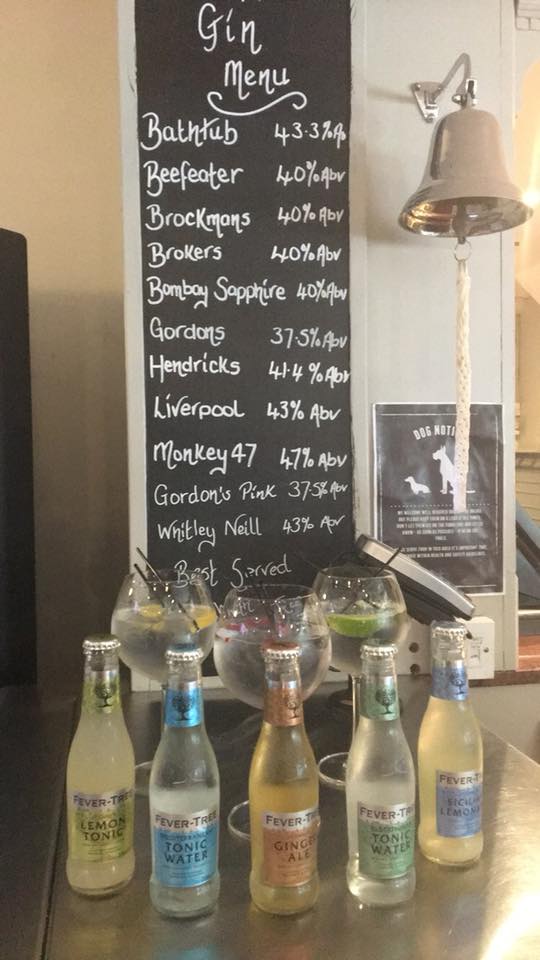 Gin
Menu
Bathtub 43.3% A
Beefeater 40% Abv
Brockmans 40% Abv
Brokers 40% Abv
Bombay Sapphire 40% Abv
Gordons 37.5% Abv
Hendricks 41.4 % Abv
Liverpool 43% Abv
Monkey 47 47% Abv
Gordon's Pink 37.5% Abv
Whitley Neill 43% Abv
Best Served
DOG NOTI
FEVER-TREE
LEMON
TONIC
FEVER-TREE
MEDITERRANEAN
TONIC
WATER
FEVER-TREE
GINGER
ALE
FEVER-TREE
TONIC
WATER
FEVER-TREE
SICILIAN
LEMONA